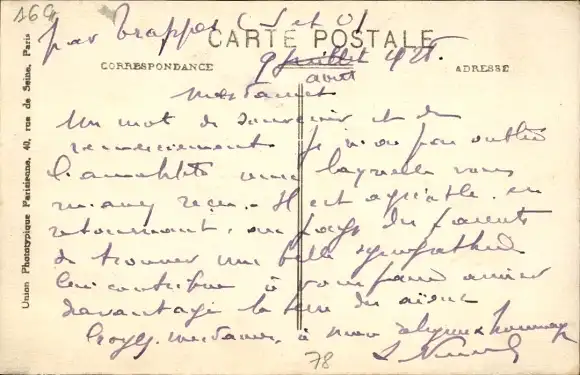 169
par Trappes (S et O)
CARTE POSTALE
9 juillet
août
CORRESPONDANCE
ADRESSE
Mesdames
Un mot de souvenir et de
remerciement. Je n'ai pas oublié
l'amabilité avec laquelle vous
m'avez reçu. Il est agréable, en
retournant au pays des parents
de trouver une belle sympathie
qui contribue à vous faire aimer
davantage la terre des aïeux
Croyez, mesdames, à mes hommages
78
Union Phototypique Parisienne, 40, rue de Seine, Paris